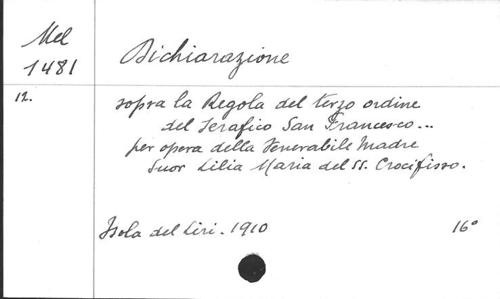 Mel
1481
Dichiarazione
12.
sopra la Regola del terzo ordine
del Serafico San Francesco...
per opera della Venerabile Madre
Suor Lilia Maria del SS. Crocifisso.
Isola del Liri. 1910
16°